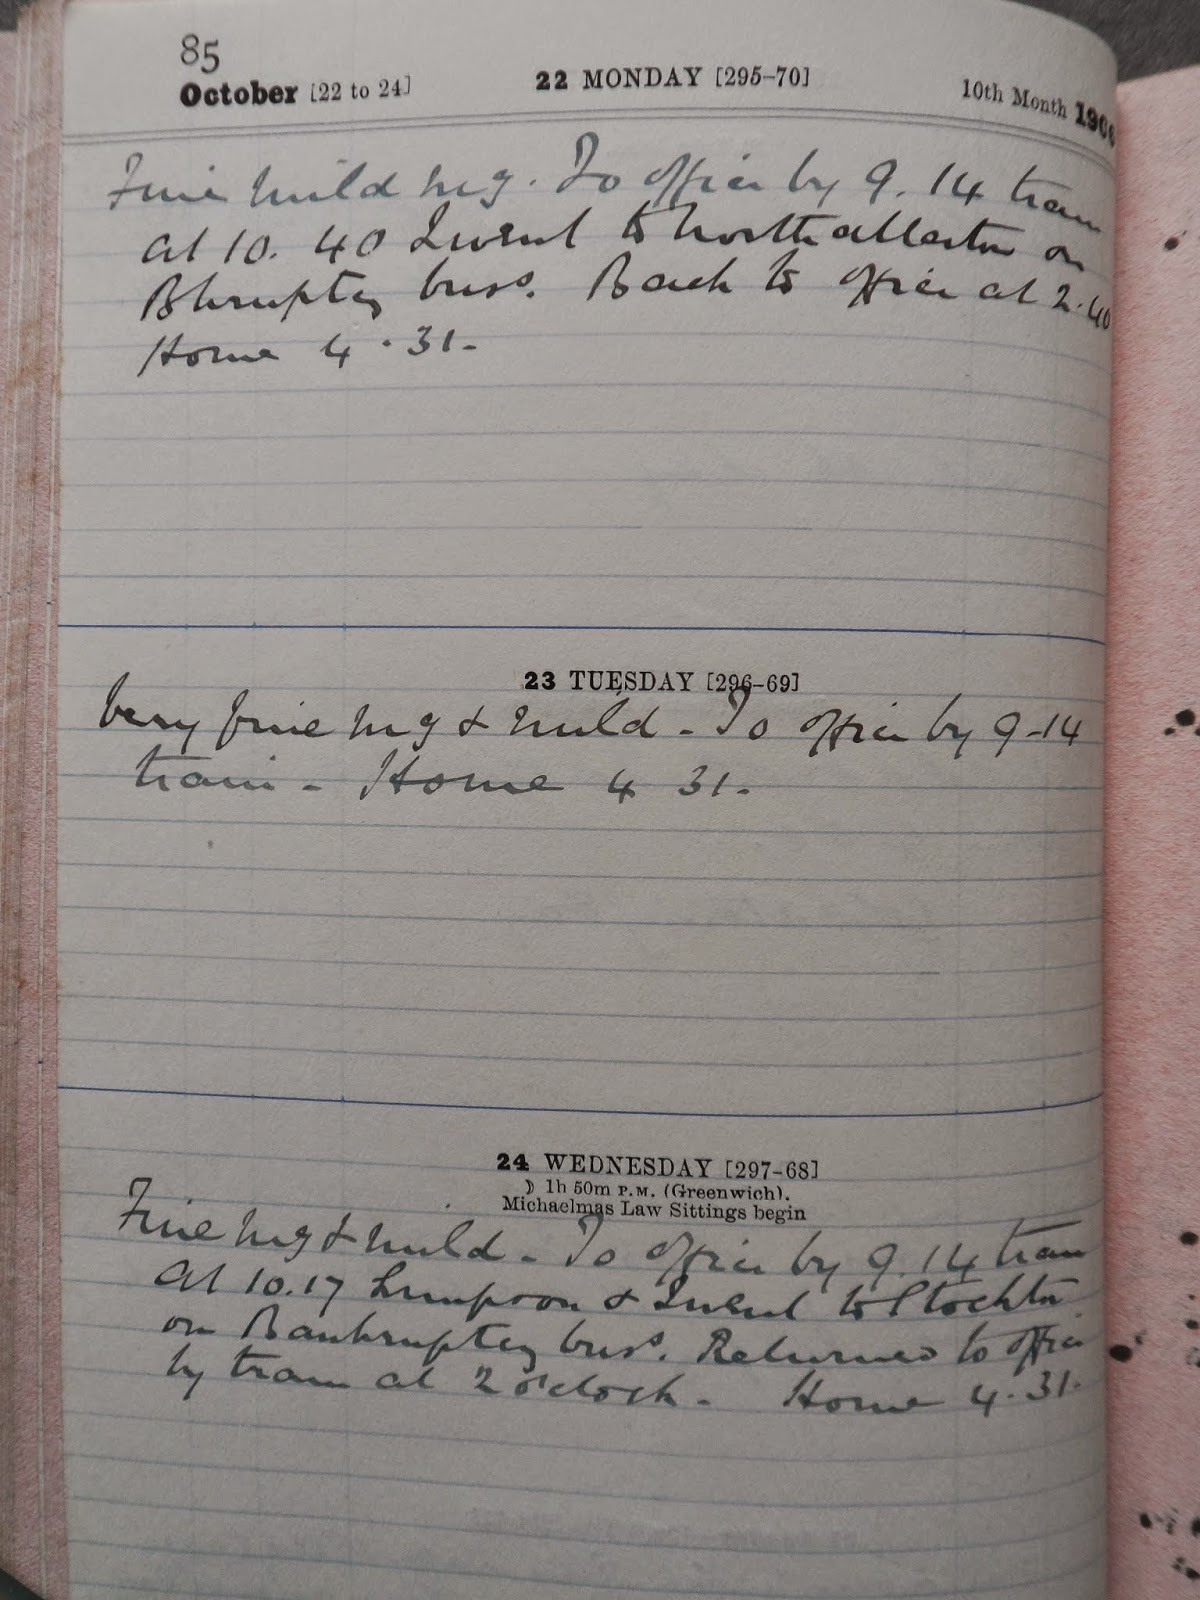 85
October [22 to 24] 22 MONDAY [295–70] 10th Month 1906
Fine mild mg. To office by 9.14 train
at 10.40 I went to Northallerton on
Bkruptcy buss. Back to office at 2.40
Home 4.31-
23 TUESDAY [296–69]
Very fine mg & mild - To office by 9-14
train - Home 4 31.
24 WEDNESDAY [297–68]
☽ 1h 50m P.M. (Greenwich).
Michaelmas Law Sittings begin
Fine mg & mild - To office by 9.14 train
At 10.17 & I went to Stockton
on Bankruptcy buss. Returned to office
by train at 2 o'clock. Home 4.31.